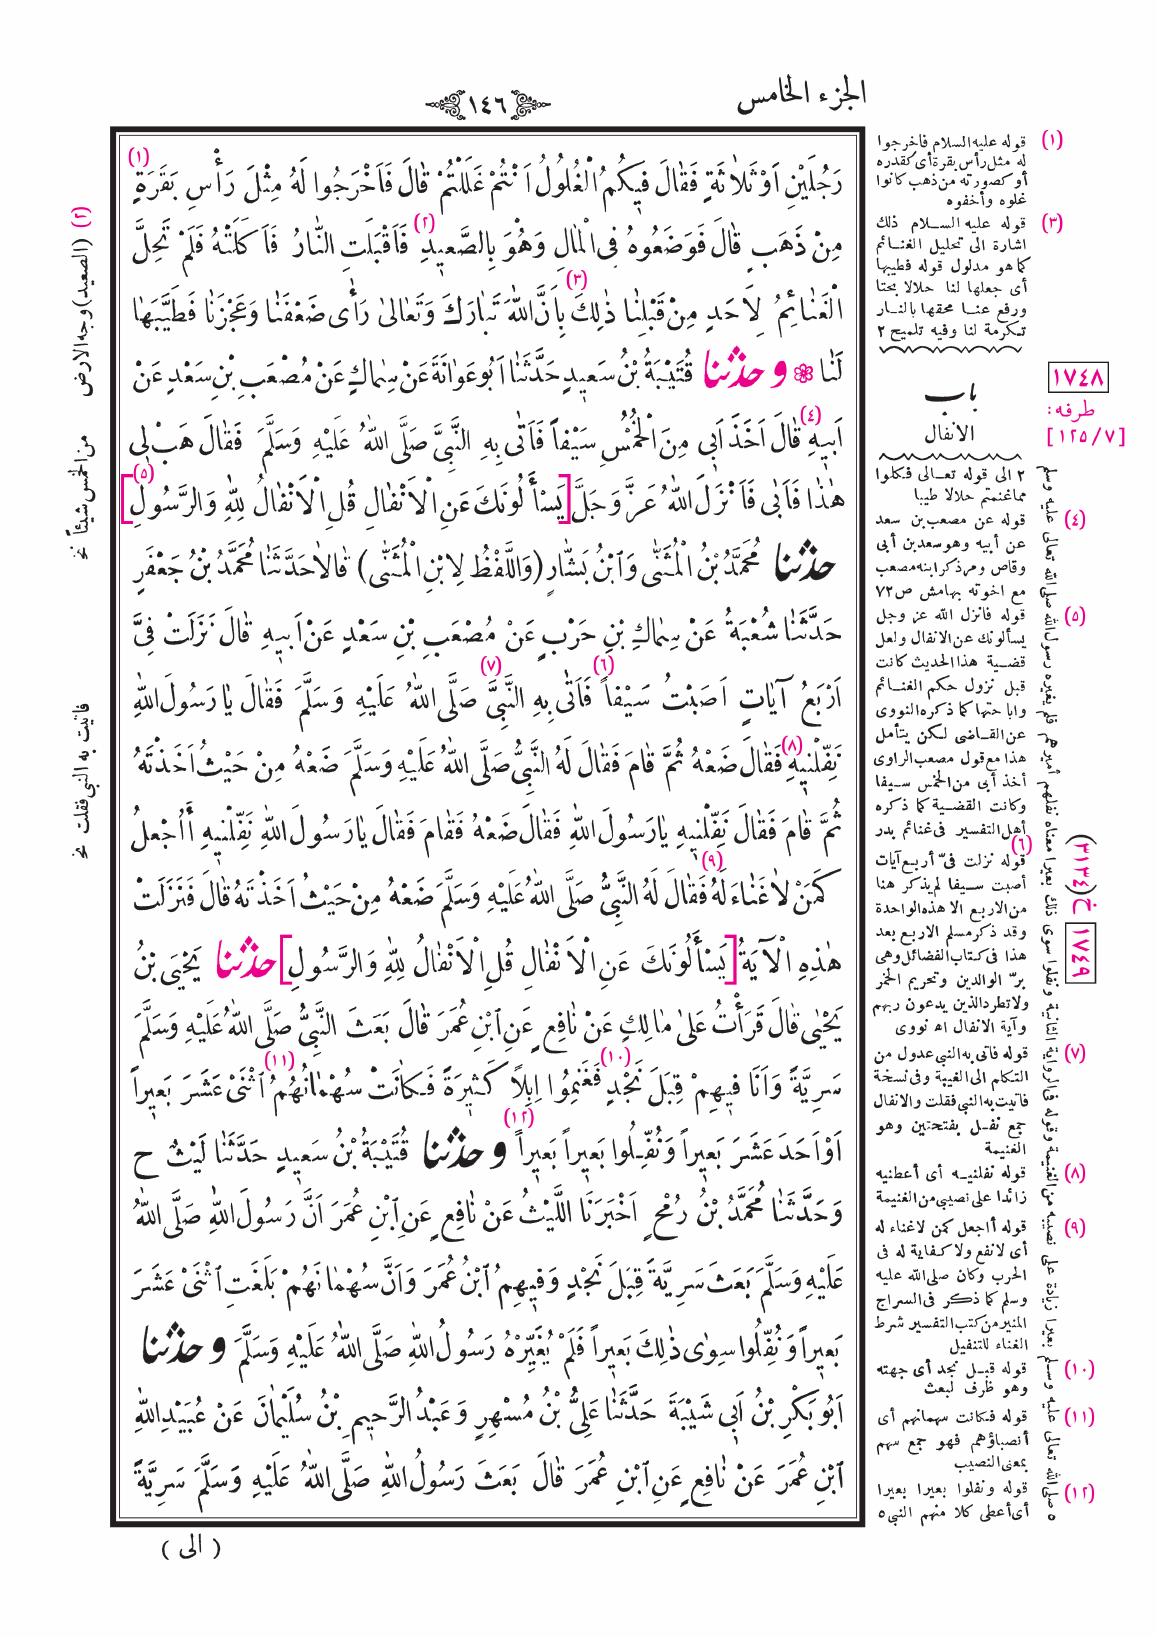 الجزء الخامس
١٤٦
رَجُلَيْنِ اَوْ ثَلَاثَةٍ فَقَالَ فِيكُمُ الْغُلُولُ اَنْتُمْ غَلَلْتُمْ قَالَ فَاَخْرَجُوا لَهُ مِثْلَ رَأْسِ بَقَرَةٍ (١)
مِنْ ذَهَبٍ قَالَ فَوَضَعُوهُ فِى الْمَالِ وَهُوَ بِالصَّعِيدِ (٢) فَاَقْبَلَتِ النَّارُ فَاَكَلَتْهُ فَلَمْ تَحِلَّ
الْغَنَائِمُ لِاَحَدٍ مِنْ قَبْلِنَا ذٰلِكَ (٣) بِاَنَّ اللّٰهَ تَبَارَكَ وَتَعَالىٰ رَأٰى ضَعْفَنَا وَعَجْزَنَا فَطَيَّبَهَا
لَنَا ❁ و حدثنا قُتَيْبَةُ بْنُ سَعِيدٍ حَدَّثَنَا اَبُوعَوَانَةَ عَنْ سِمَاكٍ عَنْ مُصْعَبِ بْنِ سَعْدٍ عَنْ
اَبِيهِ (٤) قَالَ اَخَذَ اَبِى مِنَ الْخُمْسِ سَيْفاً فَاَتٰى بِهِ النَّبِىَّ صَلَّى اللّٰهُ عَلَيْهِ وَسَلَّمَ فَقَالَ هَبْ لِى
هٰذَا فَاَبٰى فَاَنْزَلَ اللّٰهُ عَزَّ وَجَلَّ [يَسْأَلُونَكَ عَنِ الْاَنْفَالِ قُلِ الْاَنْفَالُ لِلّٰهِ وَالرَّسُولِ] (٥)
حدثنا مُحَمَّدُ بْنُ الْمُثَنّٰى وَابْنُ بَشَّارٍ (وَاللَّفْظُ لِابْنِ الْمُثَنّٰى) قَالَا حَدَّثَنَا مُحَمَّدُ بْنُ جَعْفَرٍ
حَدَّثَنَا شُعْبَةُ عَنْ سِمَاكِ بْنِ حَرْبٍ عَنْ مُصْعَبِ بْنِ سَعْدٍ عَنْ اَبِيهِ قَالَ نَزَلَتْ فِىَّ
اَرْبَعُ آيَاتٍ اَصَبْتُ سَيْفاً (٦) فَاَتٰى بِهِ النَّبِىَّ (٧) صَلَّى اللّٰهُ عَلَيْهِ وَسَلَّمَ فَقَالَ يَا رَسُولَ اللّٰهِ
نَفِّلْنِيهِ (٨) فَقَالَ ضَعْهُ ثُمَّ قَامَ فَقَالَ لَهُ النَّبِىُّ صَلَّى اللّٰهُ عَلَيْهِ وَسَلَّمَ ضَعْهُ مِنْ حَيْثُ اَخَذْتَهُ
ثُمَّ قَامَ فَقَالَ نَفِّلْنِيهِ يَا رَسُولَ اللّٰهِ فَقَالَ ضَعْهُ فَقَامَ فَقَالَ يَا رَسُولَ اللّٰهِ نَفِّلْنِيهِ أَاُجْعَلُ
كَمَنْ لَا غَنَاءَ لَهُ (٩) فَقَالَ لَهُ النَّبِىُّ صَلَّى اللّٰهُ عَلَيْهِ وَسَلَّمَ ضَعْهُ مِنْ حَيْثُ اَخَذْتَهُ قَالَ فَنَزَلَتْ
هٰذِهِ الْآيَةُ [يَسْأَلُونَكَ عَنِ الْاَنْفَالِ قُلِ الْاَنْفَالُ لِلّٰهِ وَالرَّسُولِ] حدثنا يَحْيَى بْنُ
يَحْيٰى قَالَ قَرَأْتُ عَلىٰ مَالِكٍ عَنْ نَافِعٍ عَنِ ابْنِ عُمَرَ قَالَ بَعَثَ النَّبِىُّ صَلَّى اللّٰهُ عَلَيْهِ وَسَلَّمَ
سَرِيَّةً وَاَنَا فِيهِمْ قِبَلَ نَجْدٍ (١٠) فَغَنِمُوا اِبِلاً كَثِيرَةً فَكَانَتْ سُهْمَانُهُمُ (١١) اثْنَىْ عَشَرَ بَعِيراً
اَوْ اَحَدَ عَشَرَ بَعِيراً وَنُفِّلُوا بَعِيراً بَعِيراً (١٢) و حدثنا قُتَيْبَةُ بْنُ سَعِيدٍ حَدَّثَنَا لَيْثٌ ح
وَحَدَّثَنَا مُحَمَّدُ بْنُ رُمْحٍ اَخْبَرَنَا اللَّيْثُ عَنْ نَافِعٍ عَنِ ابْنِ عُمَرَ اَنَّ رَسُولَ اللّٰهِ صَلَّى اللّٰهُ
عَلَيْهِ وَسَلَّمَ بَعَثَ سَرِيَّةً قِبَلَ نَجْدٍ وَفِيهِمُ ابْنُ عُمَرَ وَاَنَّ سُهْمَانَهُمْ بَلَغَتِ اثْنَىْ عَشَرَ
بَعِيراً وَنُفِّلُوا سِوٰى ذٰلِكَ بَعِيراً فَلَمْ يُغَيِّرْهُ رَسُولُ اللّٰهِ صَلَّى اللّٰهُ عَلَيْهِ وَسَلَّمَ و حدثنا
اَبُوبَكْرِ بْنُ اَبِى شَيْبَةَ حَدَّثَنَا عَلِىُّ بْنُ مُسْهِرٍ وَعَبْدُ الرَّحِيمِ بْنُ سُلَيْمَانَ عَنْ عُبَيْدِ اللّٰهِ
ابْنِ عُمَرَ عَنْ نَافِعٍ عَنِ ابْنِ عُمَرَ قَالَ بَعَثَ رَسُولُ اللّٰهِ صَلَّى اللّٰهُ عَلَيْهِ وَسَلَّمَ سَرِيَّةً
( الى )
(١) قوله عليه السلام فاخرجوا
له مثل رأس بقرة أى كقدره
أو كصورته من ذهب كانوا
غلوه وأخفوه
(٣) قوله عليه السلام ذلك
اشارة الى تحليل الغنائم
كما هو مدلول قوله فطيبها
أى جعلها لنا حلالا بحتا
ورفع عنا محقها بالنار
تكرمة لنا وفيه تلميح ٢
باب
الانفال
١٧٤٨
طرفه:
[١٢٥/٧]
٢ الى قوله تعالى فكلوا
مما غنمتم حلالا طيبا
(٤) قوله عن مصعب بن سعد
عن أبيه وهو سعد بن أبى
وقاص ومر ذكر ابنه مصعب
مع اخوته بهامش ص ٧٢
(٥) قوله فانزل الله عز وجل
يسألونك عن الانفال ولعل
قضية هذا الحديث كانت
قبل نزول حكم الغنائم
واباحتها كما ذكره النووى
عن القاضى لكن يتأمل
هذا مع قول مصعب الراوى
أخذ أبى من الخمس سيفا
وكانت القضية كما ذكره
أهل التفسير فى غنائم بدر
(٦) قوله نزلت فىّ أربع آيات
أصبت سيفا لم يذكر هنا
من الاربع الا هذه الواحدة
وقد ذكر مسلم الاربع بعد
هذا فى كتاب الفضائل وهى
برّ الوالدين وتحريم الخمر
ولا تطرد الذين يدعون ربهم
وآية الانفال اه نووى
خ (٣١٣٤)
١٧٤٩
(٧) قوله فاتى به النبى عدول من
التكلم الى الغيبة وفى نسخة
فاتيت به النبى فقلت والانفال
جمع نفل بفتحتين وهو
الغنيمة
(٨) قوله نفلنيه أى أعطنيه
زائدا على نصيبى من الغنيمة
(٩) قوله أاجعل كمن لاغناء له
أى لانفع ولا كفاية له فى
الحرب وكان صلى الله عليه
وسلم كما ذكر فى السراج
المنير من كتب التفسير شرط
الغناء للتنفيل
(١٠) قوله قبل نجد أى جهته
وهو ظرف لبعث
(١١) قوله فكانت سهمانهم أى
أنصباؤهم فهو جمع سهم
بمعنى النصيب
(١٢) قوله ونفلوا بعيرا بعيرا
أى أعطى كلا منهم النبى ٥
٥ صلى الله تعالى عليه وسلم بعيرا زيادة على نصيبه من الغنيمة وقوله فى الرواية الثانية ونفلوا سوى ذلك بعيرا معناه نفلهم أميرهم فلم يغيره رسول الله صلى الله تعالى عليه وسلم
(٢) (الصعيد) وجه الارض
من الخمس شيئاً نخ
فاتيت به النبى فقلت نخ